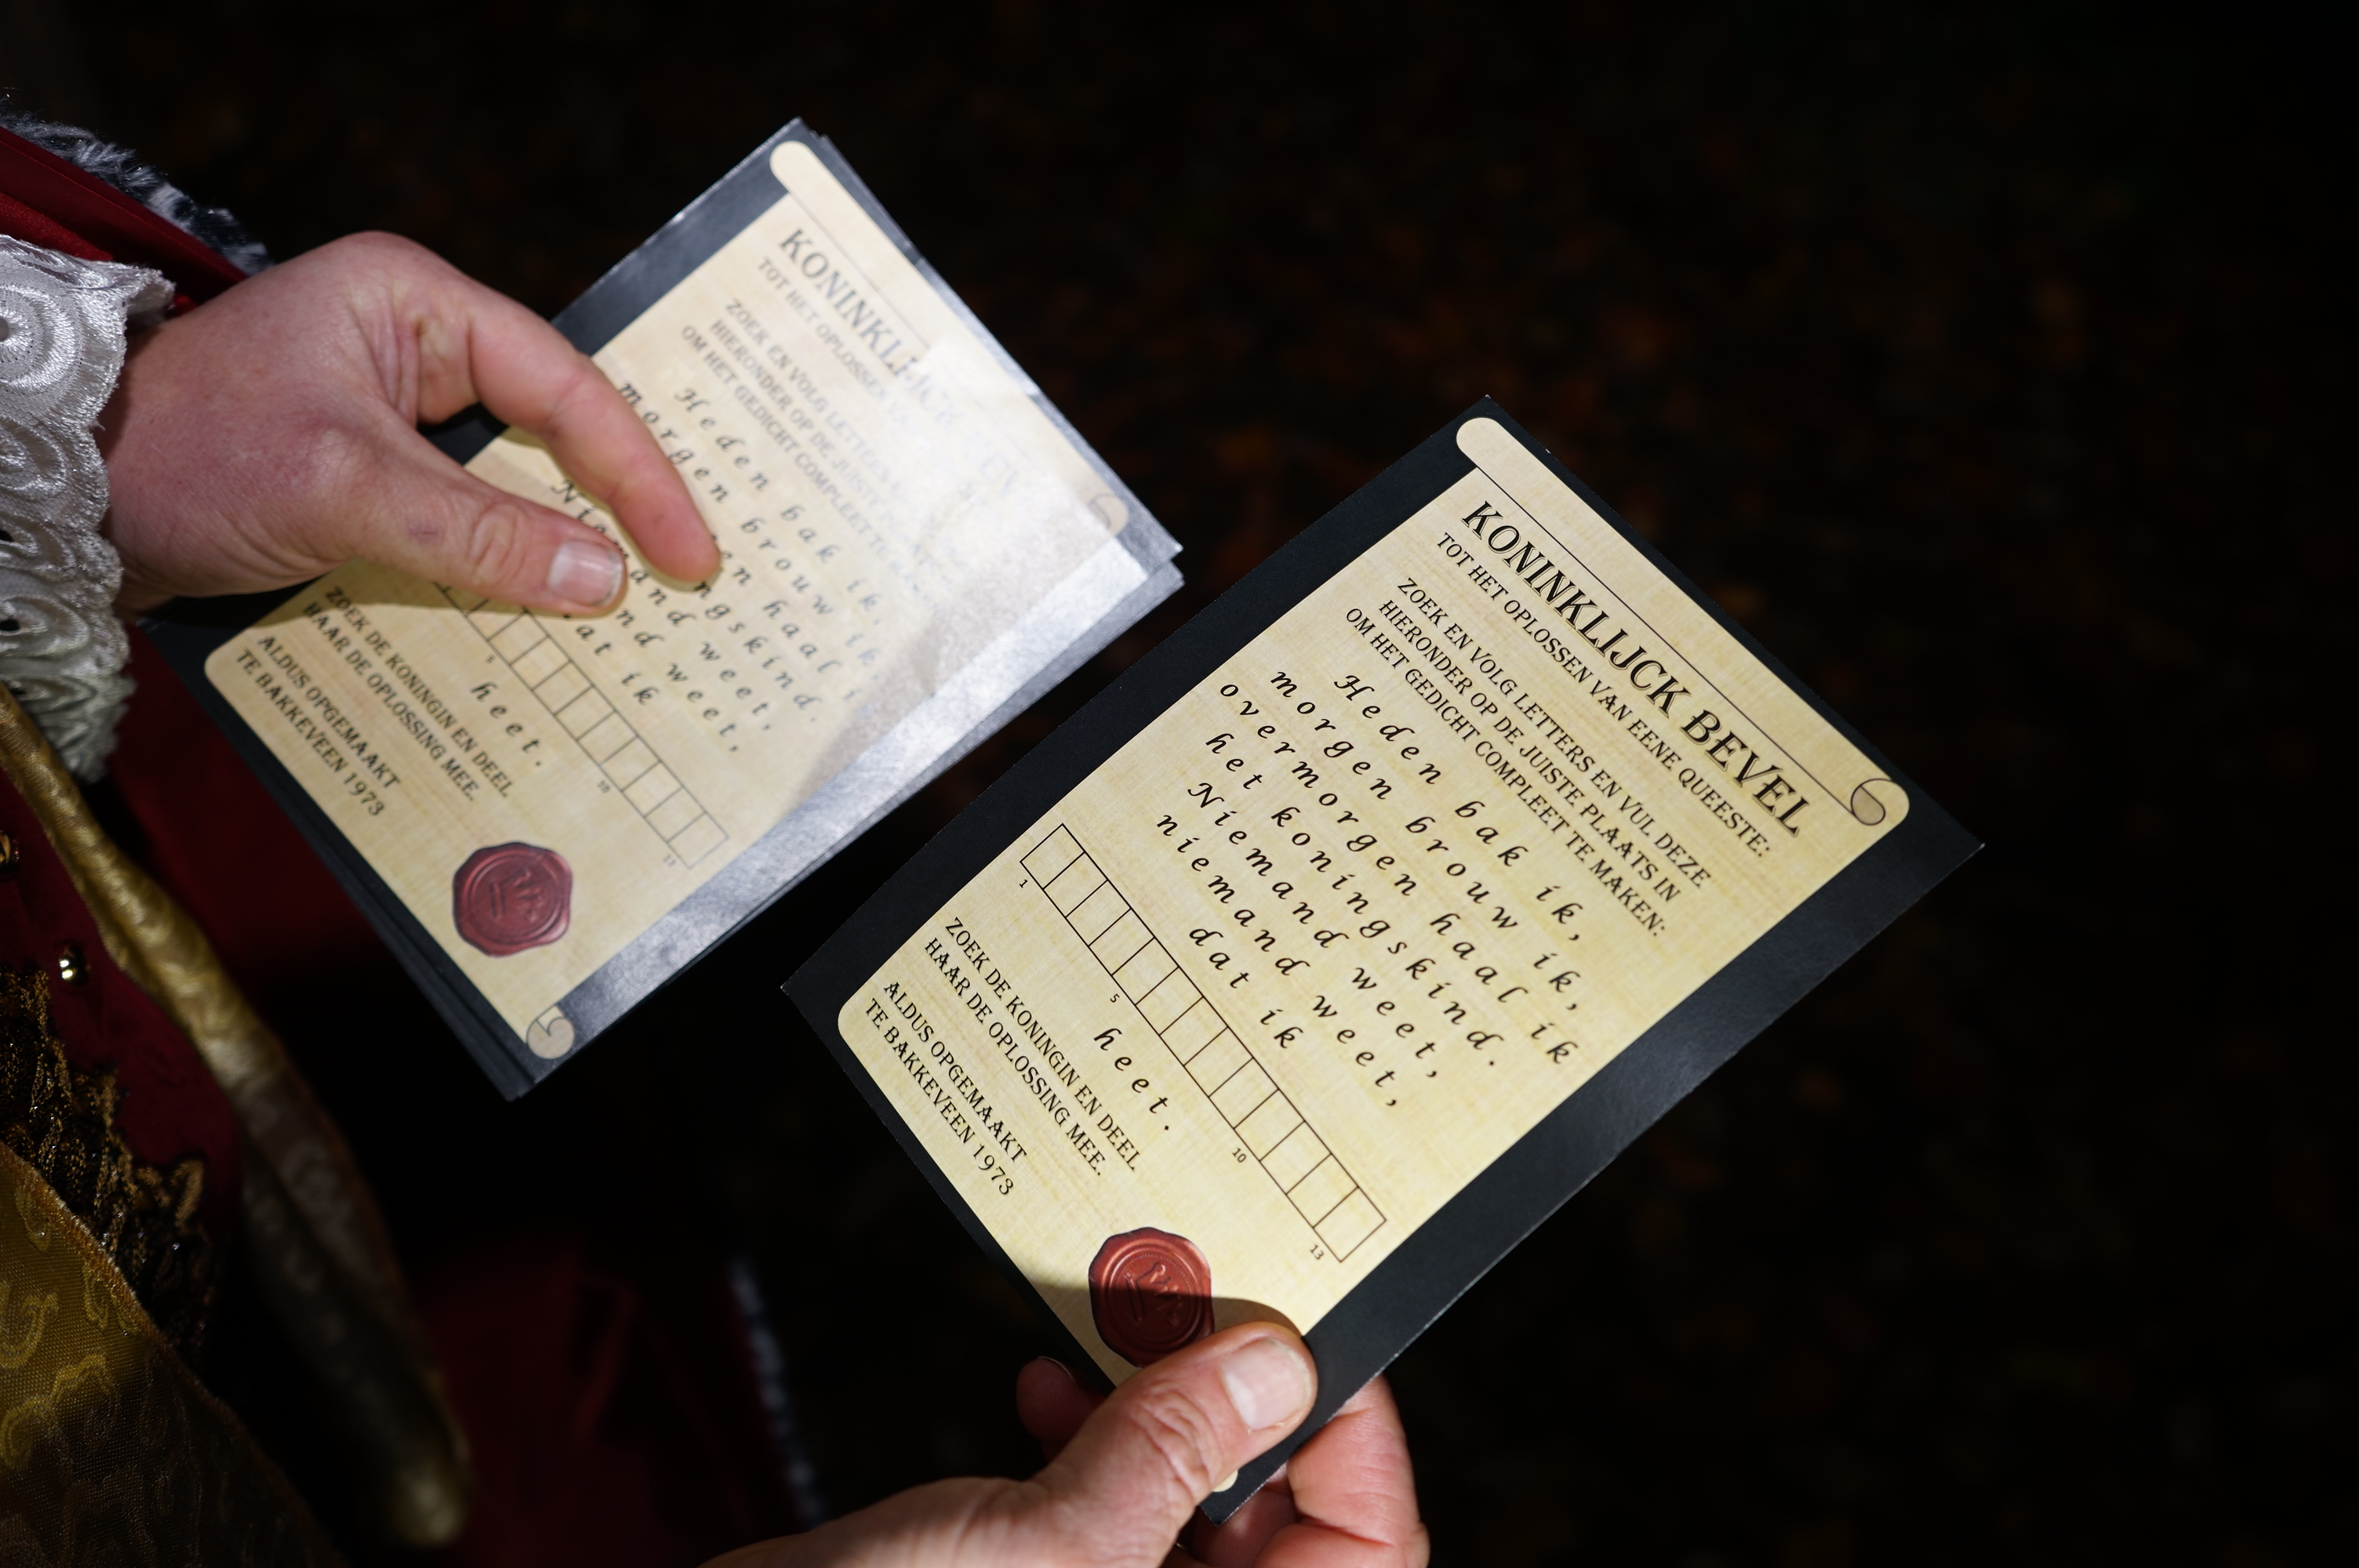 KONINKLIJCK
TOT HET OPLOSSEN
ZOEK EN VOLG LETTERS
HIERONDER OP DE JUISTE
OM HET GEDICHT COMPLEET TE
Heden bak ik,
morgen brouw ik
haal
weet,
weet,
ik
5 10 13
heet.
ZOEK DE KONINGIN EN DEEL
HAAR DE OPLOSSING MEE.
ALDUS OPGEMAAKT
TE BAKKEVEEN 1973
KONINKLIJCK BEVEL
TOT HET OPLOSSEN VAN EENE QUEESTE:
ZOEK EN VOLG LETTERS EN VUL DEZE
HIERONDER OP DE JUISTE PLAATS IN
OM HET GEDICHT COMPLEET TE MAKEN:
Heden bak ik,
morgen brouw ik,
overmorgen haal ik
het koningskind.
Niemand weet,
niemand weet,
dat ik
1 5 10 13
heet.
ZOEK DE KONINGIN EN DEEL
HAAR DE OPLOSSING MEE.
ALDUS OPGEMAAKT
TE BAKKEVEEN 1973